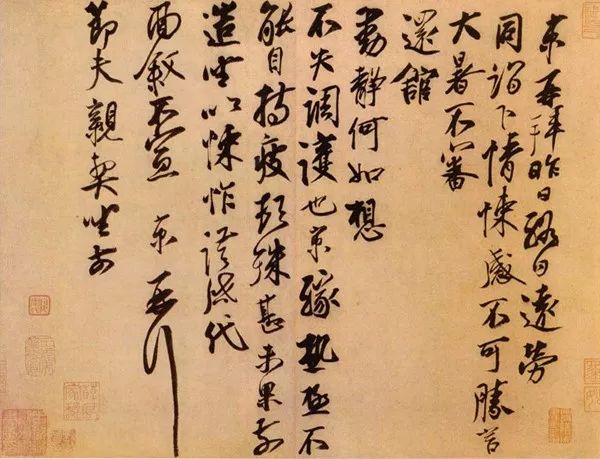 京再拜昨日終日遠勞
同詣下情悚感不可勝言
大暑不審
還館
動靜何如想
不失調護也京緣熱極不
能自持疲頓殊甚未果前
造坐以悚怍謹啓代
面敘不宣 京再拜
節夫親契坐前